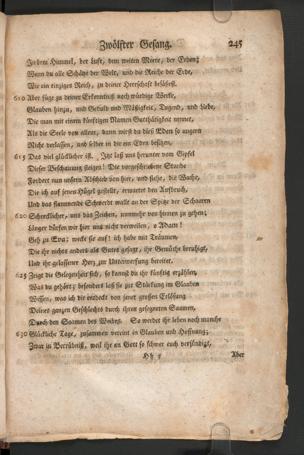 Zwölfter Gesang. 245
In dem Himmel, der Luft, dem weiten Meere, der Erden;
Wenn du alle Schätze der Welt, und die Reiche der Erde,
Wie ein einziges Reich, zu deiner Herrschaft besässest.
610 Aber füge zu deiner Erkenntniß noch würdige Werke,
Glauben hinzu, und Geduld und Mäßigkeit, Tugend, und Liebe,
Die man mit einem künftigen Namen Gutthätigkeit nennet,
Als die Seele von allem; dann wirst du dieß Eden so ungern
Nicht verlassen, und selber in dir ein Eden besitzen,
615 Das viel glücklicher ist. Jetzt laß uns herunter vom Gipfel
Dieser Beschauung steigen! Die vorgeschriebene Stunde
Fordert nun unsern Abschied von hier, und siehe, die Wache,
Die ich auf jenen Hügel gestellt, erwartet den Aufbruch,
Und das flammende Schwerdt wallt an der Spitze der Schaaren
620 Schrecklicher, uns das Zeichen, nunmehr von hinnen zu gehen;
Länger dürfen wir hier uns nicht verweilen, o Adam!
Geh zu Eva; wecke sie auf; ich habe mit Träumen,
Die ihr nichts anders als Gutes gesagt, ihr Gemüthe beruhigt,
Und ihr gelassener Herz zur Unterwerfung bereitet.
625 Zeigt die Gelegenheit sich, so kannst du ihr künftig erzählen,
Was du gehört; besonders laß sie zur Stärkung im Glauben
Wissen, was ich dir entdeckt von jener großen Erlösung
Deines ganzen Geschlechts durch ihren gesegneten Saamen,
Durch den Saamen des Weibes. So werdet ihr leben noch manche
630 Glückliche Tage, zusammen vereint in Glauben und Hoffnung;
Zwar in Betrübniß, weil ihr an Gott so schwer euch versündigt,
Hh 3 Aber